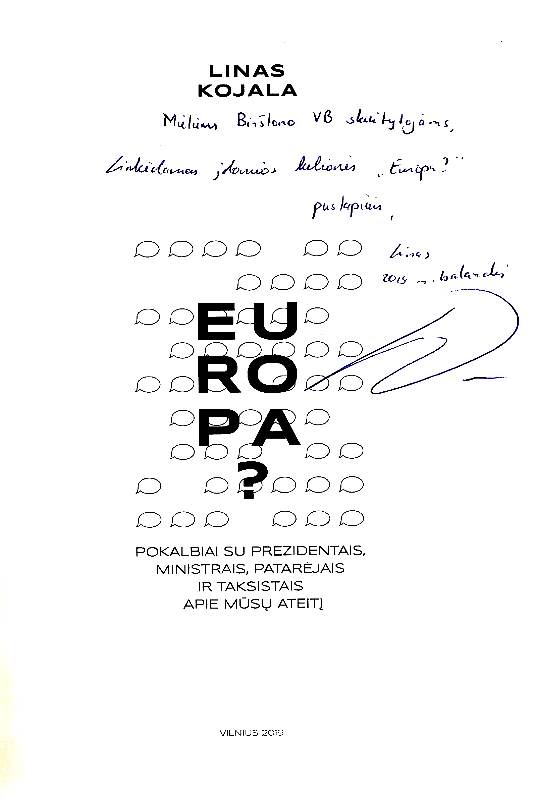 LINAS
KOJALA
Mieliems Birštono VB skaitytojams,
Linkėdamas įdomios kelionės „Europa?“
puslapiais,
Linas
2019 m. balandis
EU
RO
PA
?
POKALBIAI SU PREZIDENTAIS,
MINISTRAIS, PATARĖJAIS
IR TAKSISTAIS
APIE MŪSŲ ATEITĮ
VILNIUS 2019